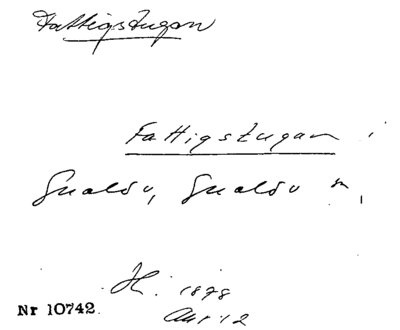 Fattigstugan
Fattigstugan i
Gualöv, Gualöv sn,
1878
12
Nr 10742.